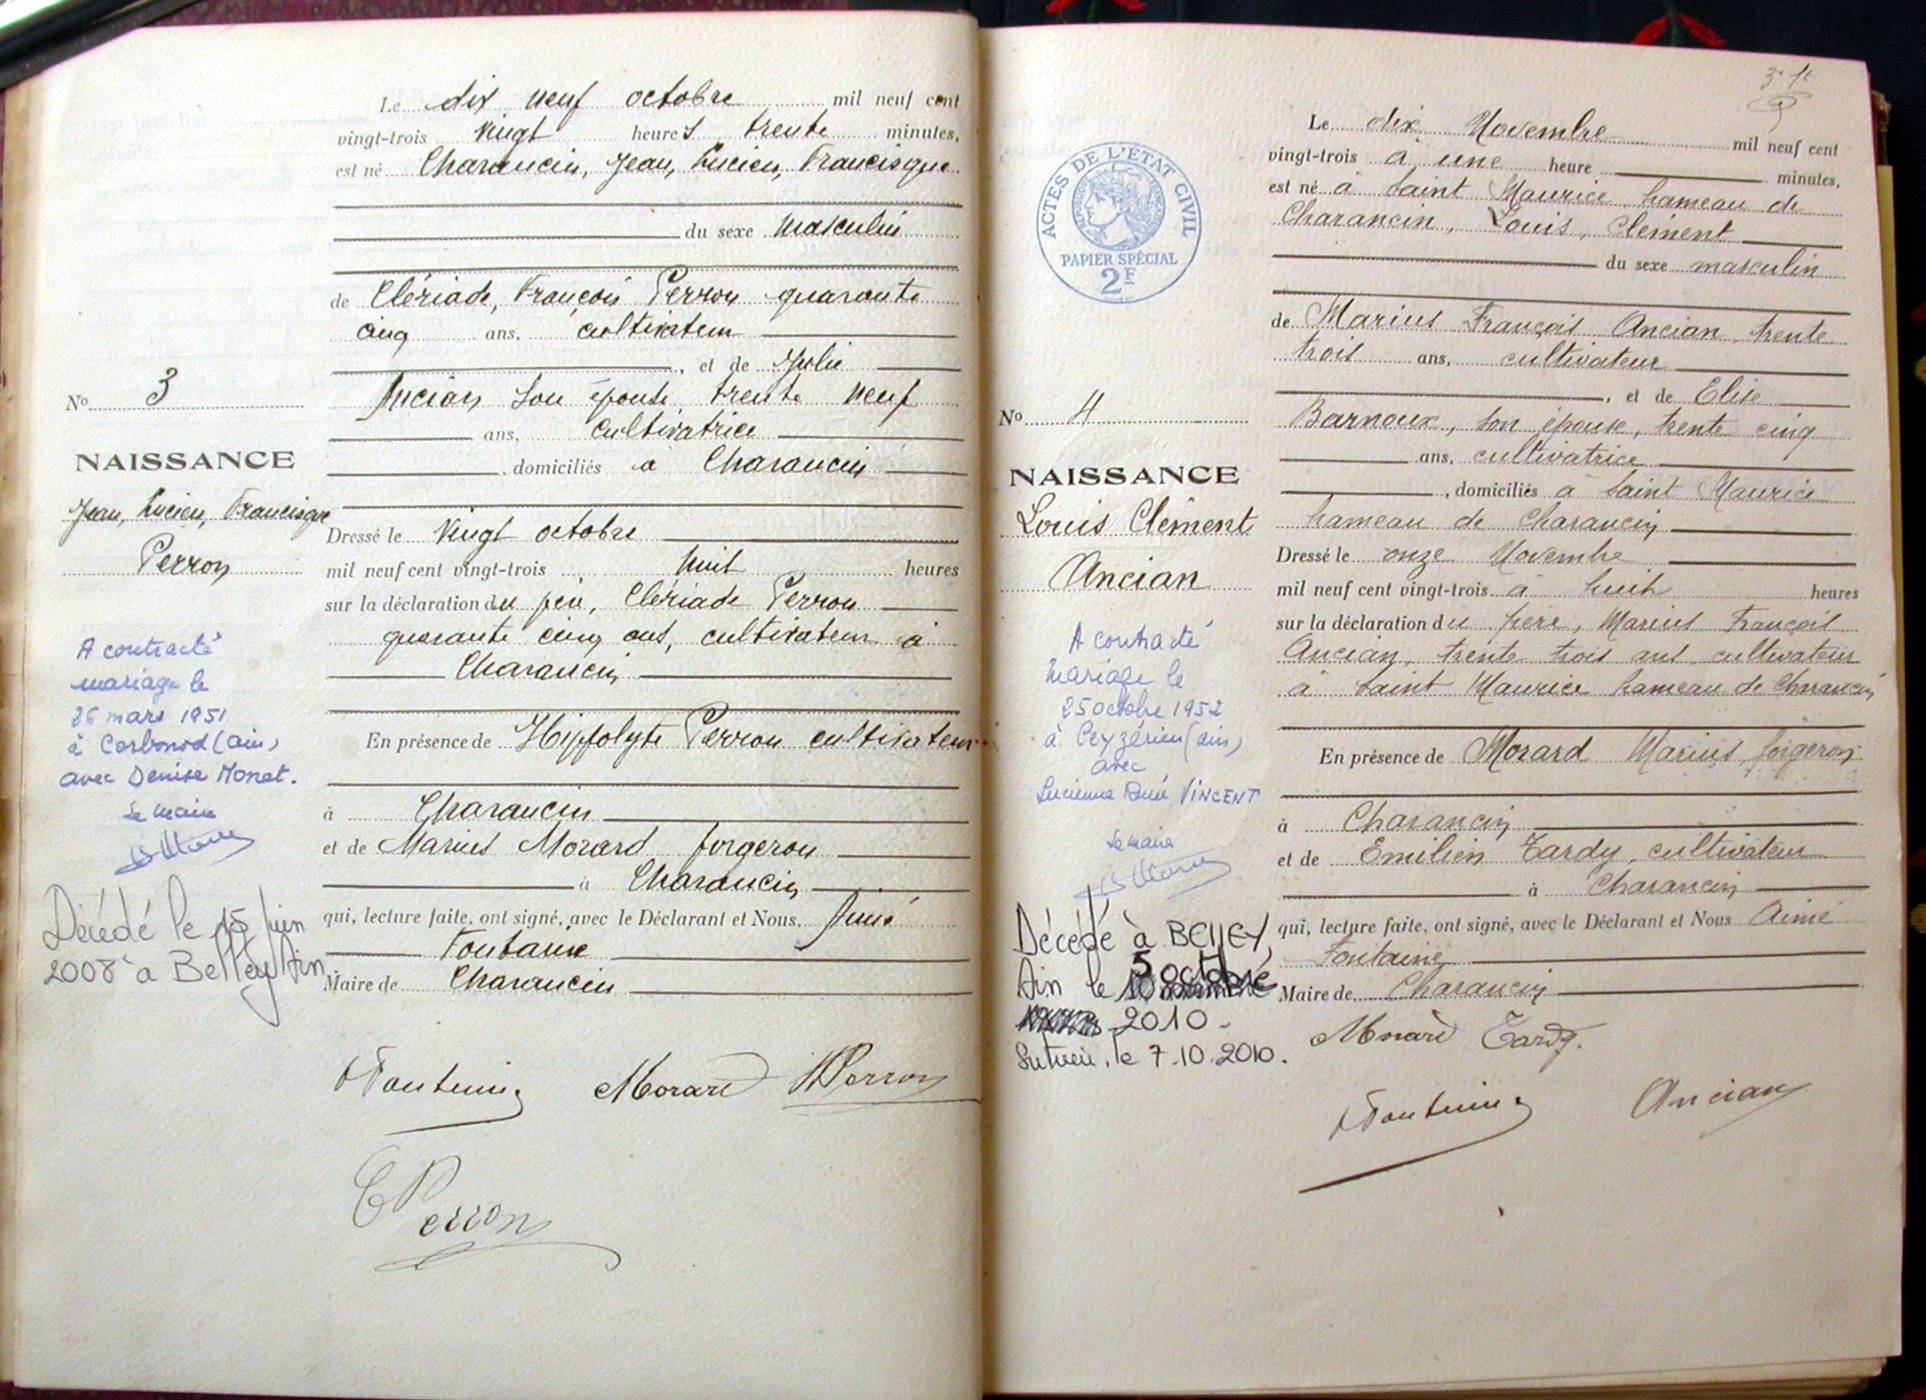 Le dix neuf octobre mil neuf cent
vingt-trois Vingt heures trente minutes,
est né Charancin, Jean, Lucien, Francisque
du sexe masculin
de Clériade, François Perron quarante
cinq ans, cultivateur
, et de Julie
Ancian son épouse trente neuf
ans, cultivatrice
, domiciliés à Charancin
Dressé le vingt octobre
mil neuf cent vingt-trois huit heures
sur la déclaration du père, Clériade Perron
quarante cinq ans, cultivateur à
Charancin
En présence de Hippolyte Perron cultivateur
à Charancin
et de Marius Morard forgeron
à Charancin
qui, lecture faite, ont signé, avec le Déclarant et Nous, Aimé
Fontaine
Maire de Charancin
Morard HPerron
CPerron
No 3
NAISSANCE
Jean, Lucien, Francisque
Perron
A contracté
mariage le
26 mars 1951
à Corbonod (Ain)
avec Denise Monet.
Le Maire
Décédé le 15 juin
2008 à Belley Ain
3e ft
ACTES DE L'ÉTAT CIVIL
PAPIER SPÉCIAL
2F
Le dix Novembre mil neuf cent
vingt-trois à une heure minutes,
est né à Saint Maurice hameau de
Charancin, Louis, Clément
du sexe masculin
de Marius François Ancian trente
trois ans, cultivateur
, et de Elise
Barnoux, son épouse, trente cinq
ans, cultivatrice
, domiciliés à Saint Maurice
hameau de Charancin
Dressé le onze Novembre
mil neuf cent vingt-trois à huit heures
sur la déclaration du père, Marius François
Ancian, trente trois ans cultivateur
à Saint Maurice hameau de Charancin
En présence de Morard Marius, forgeron
à Charancin
et de Emilien Tardy, cultivateur
à Charancin
qui, lecture faite, ont signé, avec le Déclarant et Nous Aimé
Fontaine
Maire de Charancin
Morard Tardy.
Ancian
No 4
NAISSANCE
Louis Clément
Ancian
A contracté
mariage le
25 octobre 1952
à Ceyzérieu (ain)
avec
Lucienne VINCENT
Le Maire
Décédé à BELLEY,
Ain le 5 octobre
2010.
Sutrieu, le 7.10.2010.